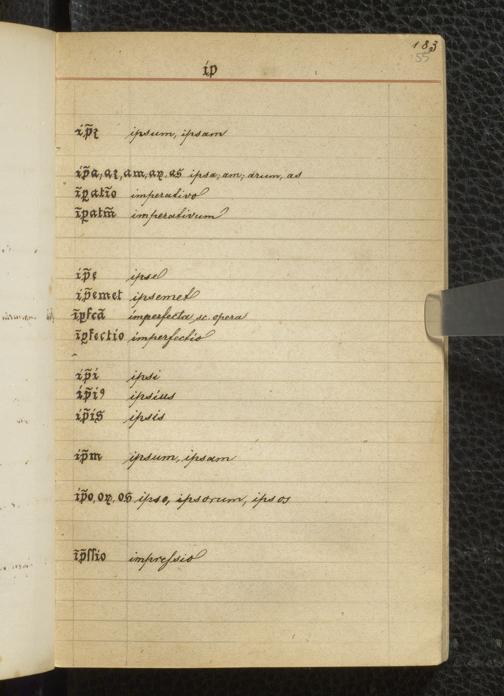 183
55
ip
ip̃ʒ ipsum, ipsam
ip̃a, aʒ, am, aꝝ, as ipsa, am, arum, as
īꝑatio͂ imperativo
īꝑatm̃ imperativum
ip̃e ipse
ip̃emet ipsemet
īꝑfcã imperfecta, sc. opera
īꝑfectio imperfectio
ip̃i ipsi
ip̃iꝰ ipsius
ip̃is ipsis
ip̃m ipsum, ipsam
ip̃o, oꝝ, os ipso, ipsorum, ipsos
īp̃ſſio impressio